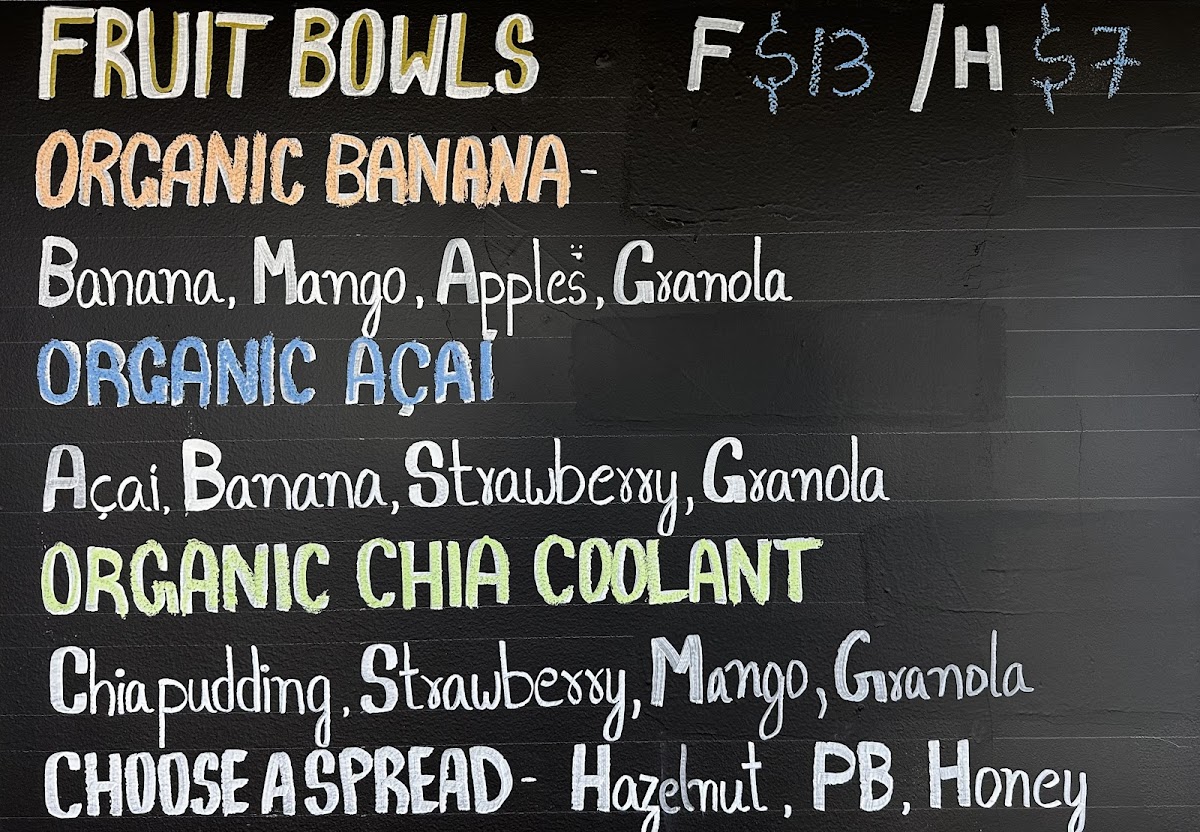 FRUIT BOWLS F $13 / H $7
ORGANIC BANANA -
Banana, Mango, Apples, Granola
ORGANIC AÇAI
Açai, Banana, Strawberry, Granola
ORGANIC CHIA COOLANT
Chia pudding, Strawberry, Mango, Granola
CHOOSE A SPREAD - Hazelnut, PB, Honey